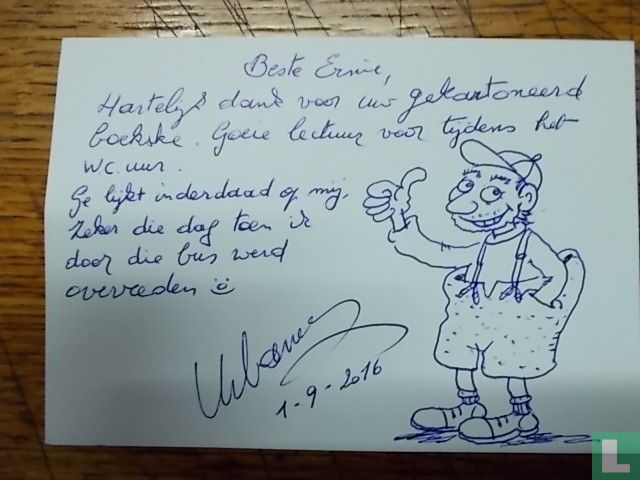 Beste Ernie,
Hartelijk dank voor uw gekartoneerd
boekske. Goeie lectuur voor tijdens het
wc uur.
Ge lijkt inderdaad op mij.
Zeker die dag toen ik
door die bus werd
overreden
Urbanus
1-9-2016
L